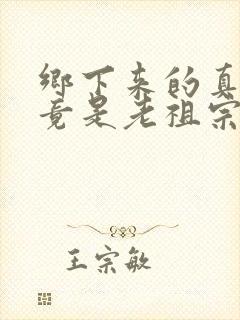 鄉下來的真
竟是老祖宗
王宗敏